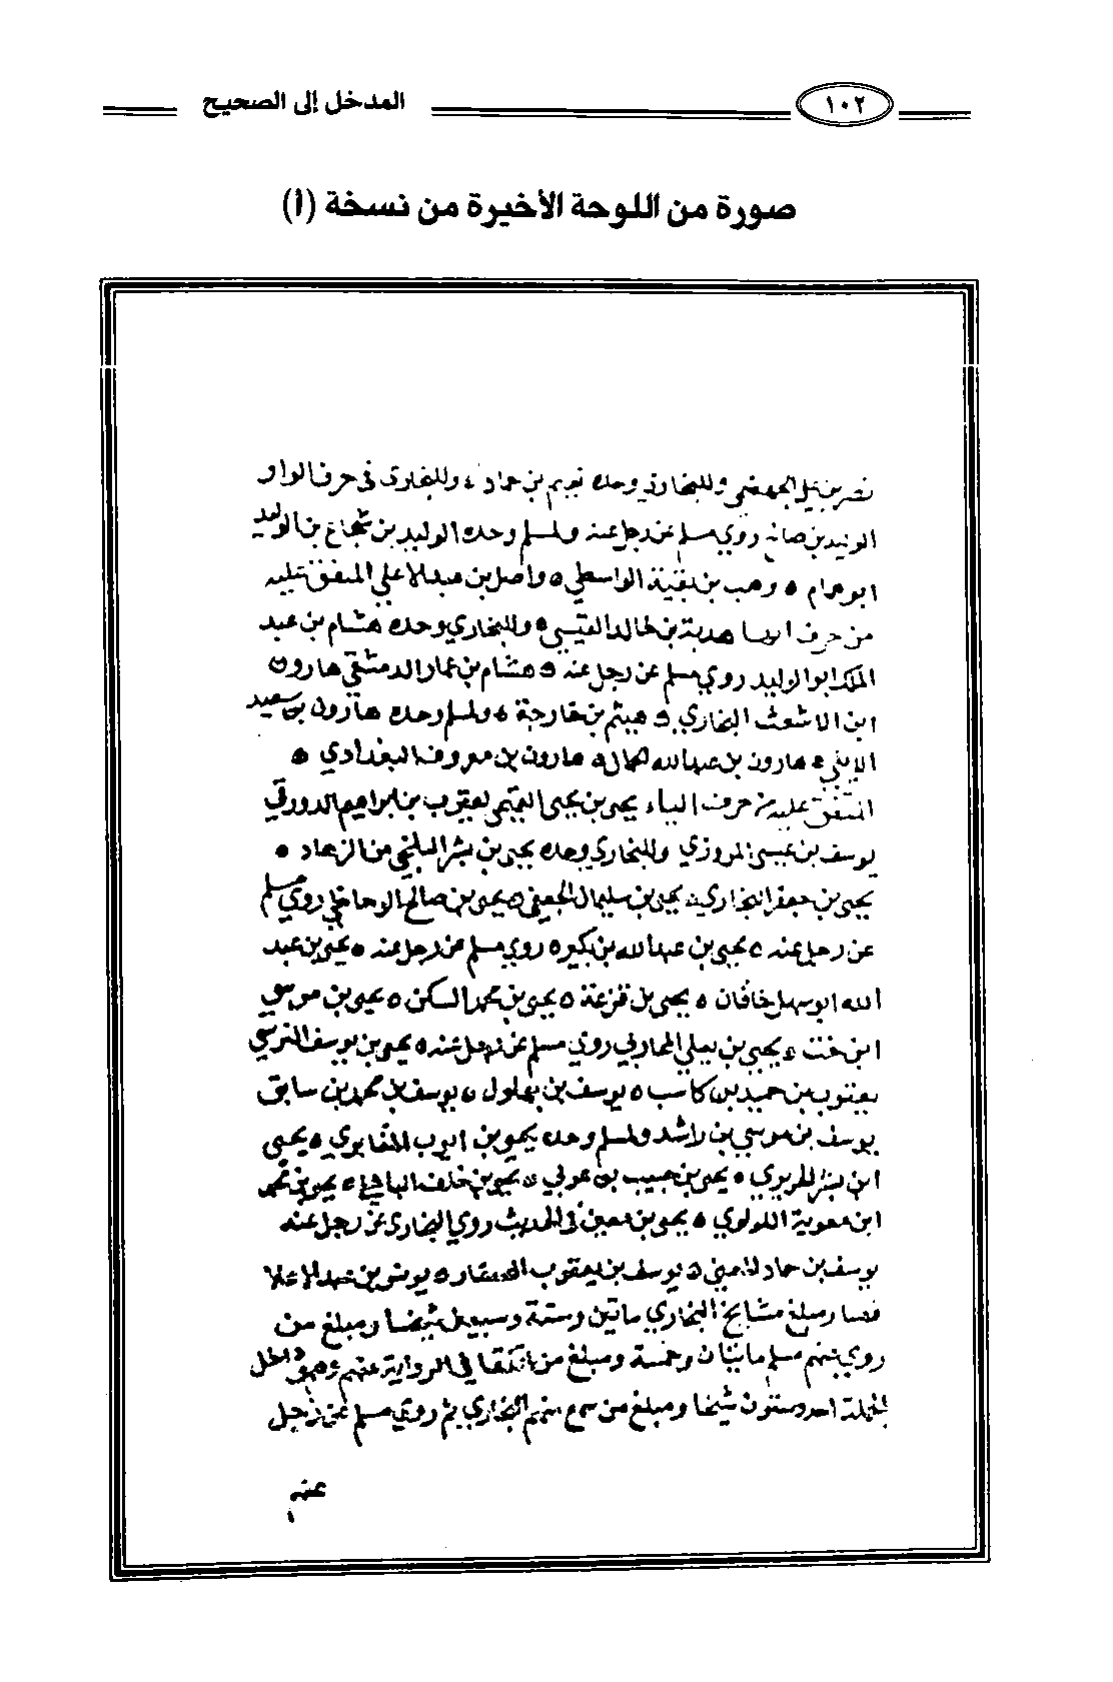 ١٠٢
المدخل إلى الصحيح
صورة من اللوحة الأخيرة من نسخة (أ)
نصر بن علي الجهضمي وللبخاري وحده نعيم بن حماد ه وللبخاري في حرف الواو
الوليد بن صالح روي مسلم عن رجل عنه ولمسلم وحده الوليد بن شجاع بن الوليد
ابو همام ه وهب بن بقية الواسطي ه واصل بن عبد الاعلي المتفق عليه
من حرف الها هدبة بن خالد القيسي ه وللبخاري وحده هشام بن عبد
الملك ابو الوليد روي مسلم عن رجل عنه ه هشام بن عمار الدمشقي هارون
ابن الاشعث البخاري ه هيثم بن خارجة ه ولمسلم وحده هارون بن سعيد
الايلي ه هارون بن عبد الله الحمال ه هارون بن معروف البغدادي ه
المتفق عليه من حرف الياء يحيى بن يحيى التميمي يعقوب بن ابراهيم الدورقي
يوسف بن عيسى المروزي وللبخاري وحده يحيى بن بشر البلخي من الزهاد ه
يحيى بن جعفر البخاري ه يحيى بن سليمان الجعفي ه يحيى بن صالح الوحاظي روي مسلم
عن رجل عنه ه يحيى بن عبد الله بن بكير ه روي مسلم عن رجل عنه ه يحيى بن عبد
الله ابو سهل خاقان ه يحيى بن قزعة ه يحيى بن محمد السكن ه يحيى بن موسى
ابن خت ه يحيى بن يعلي المحاربي روي مسلم عن رجل عنه ه يحيى بن يوسف الزمي
يعقوب بن حميد بن كاسب ه يوسف بن بهلول ه يوسف بن محمد بن سابق
يوسف بن موسي بن راشد ولمسلم وحده يحيى بن ايوب المقابري ه يحيى
ابن بشر الحريري ه يحيى بن حبيب بن عربي ه يحيى بن خلف الباهلي ه يحيى بن محمد
ابن معوية اللولوي ه يحيى بن معين في الحديث روي البخاري عن رجل عنه
يوسف بن حماد المعني ه يوسف بن يعقوب الصفار ه يونس بن عبد الاعلا
فصار مبلغ مشايخ البخاري ماتين وستة وسبعين شيخا ومبلغ من
روي عنهم مسلم مايتان وخمسة ومبلغ من اتفقا في الرواية عنهم وهو داخل
الجملة احد وستون شيخا ومبلغ من سمع منهم البخاري ثم روي مسلم عن رجل
عنهم